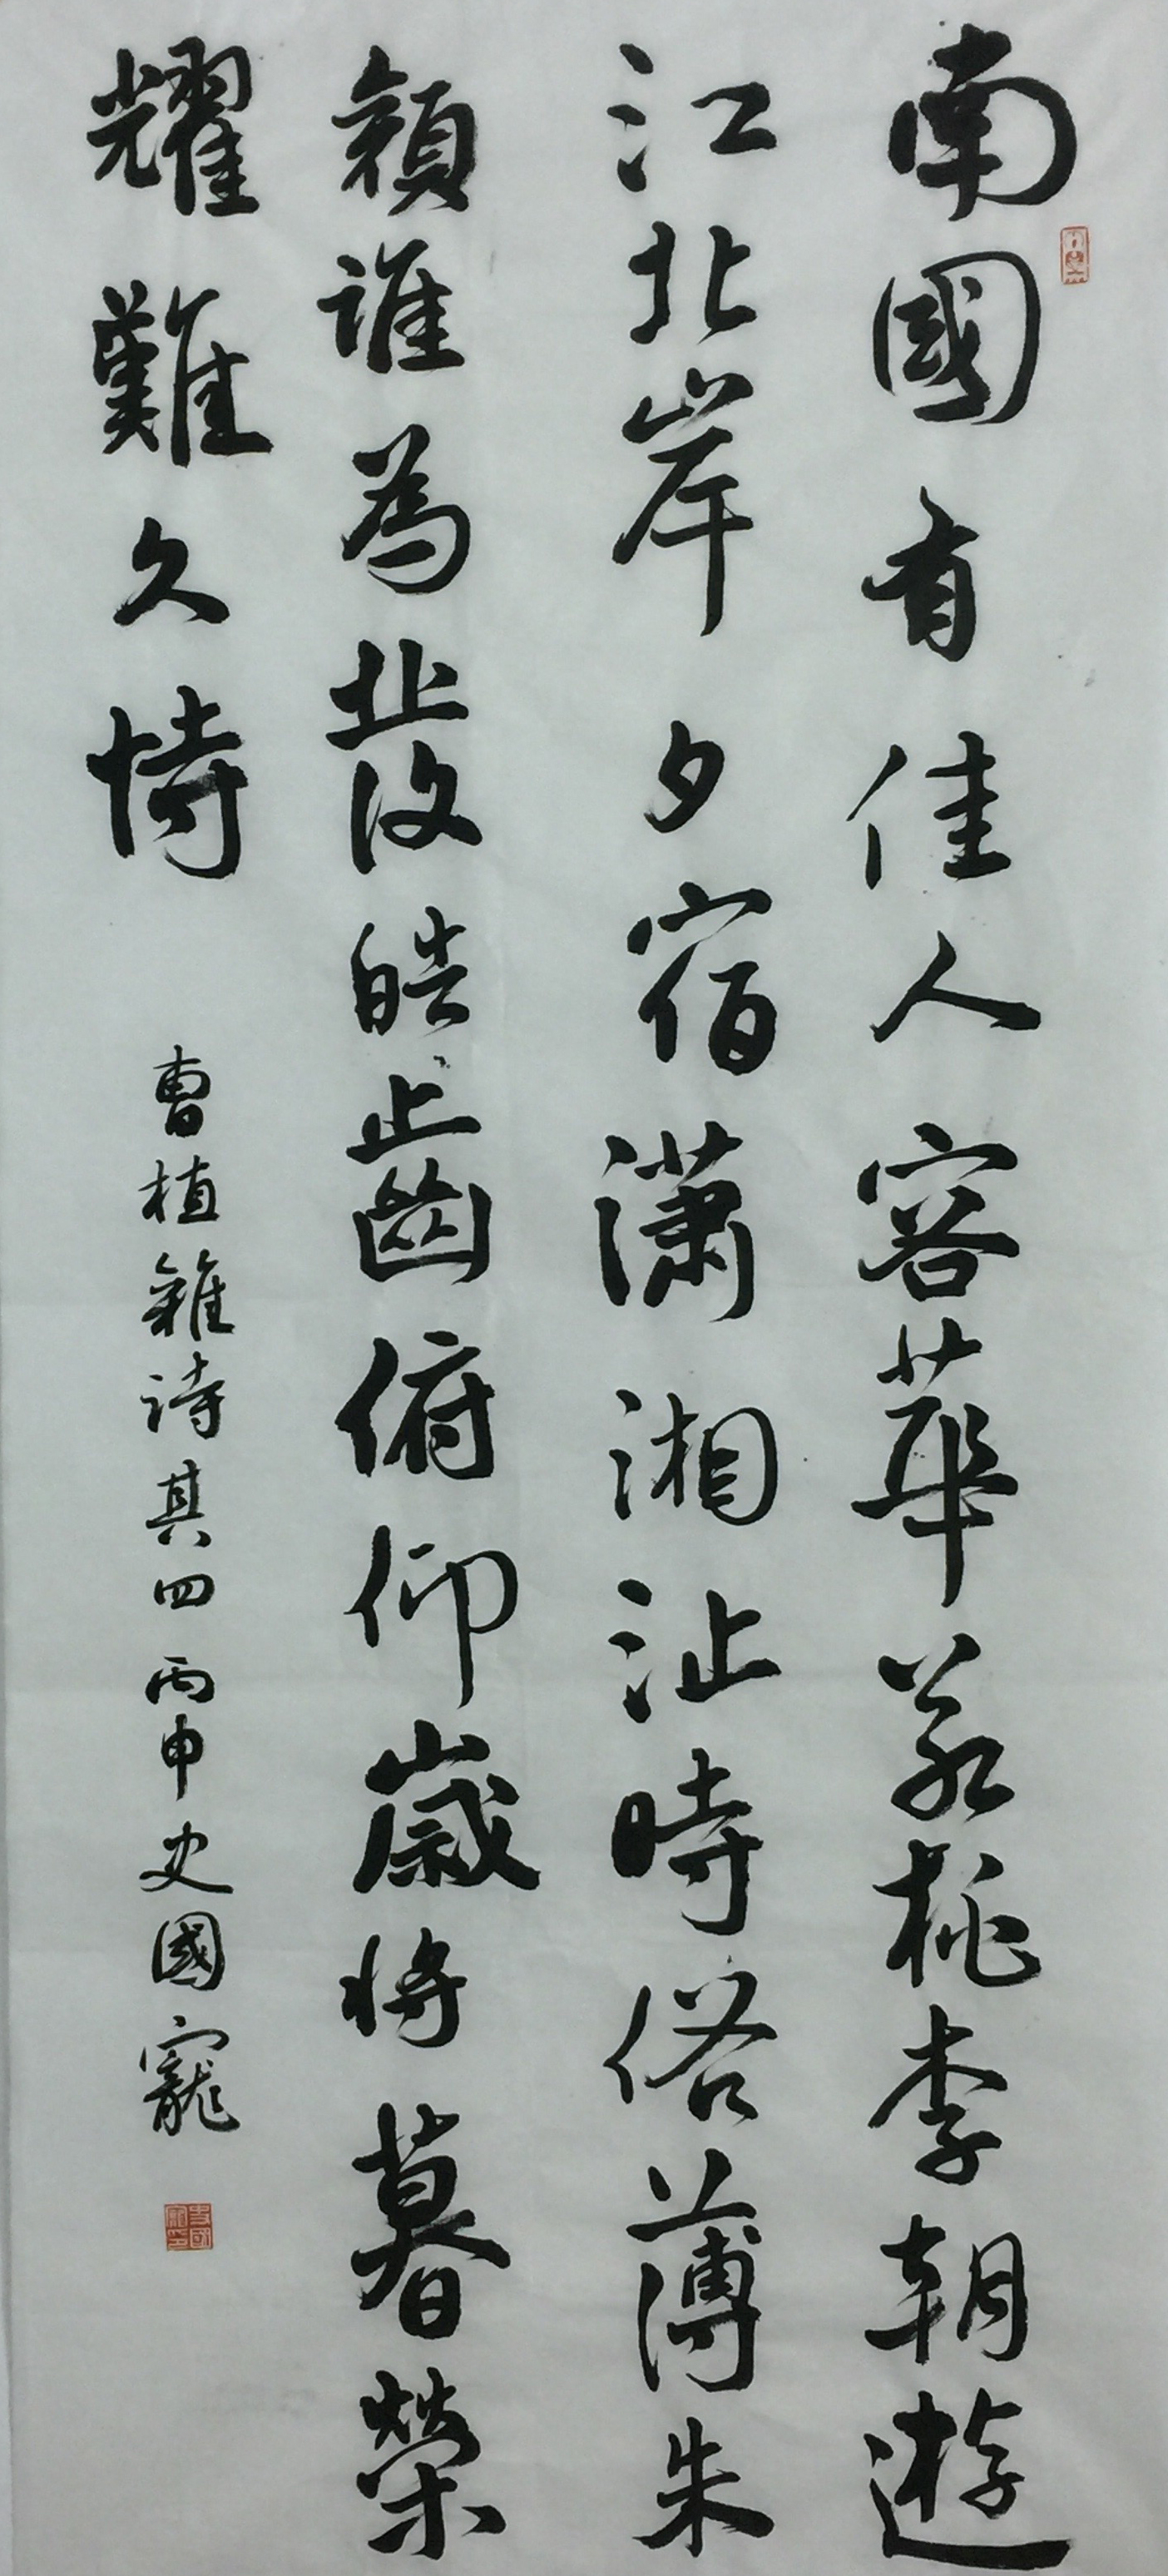 南國有佳人容華若桃李朝遊
江北岸夕宿瀟湘沚時俗薄朱
顏誰為發皓齒俯仰歲將暮榮
耀難久恃
曹植雜詩其四 丙申史國寵